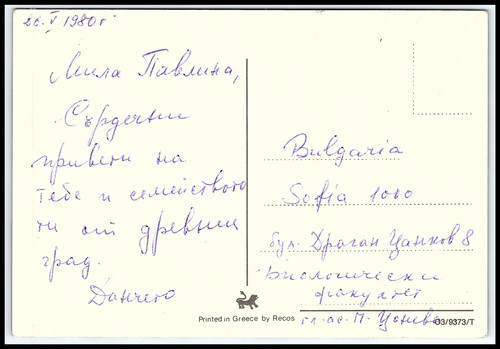 26. V 1980 г
Мила Павлина,
Сърдечни
привети на
тебе и семейството
ти от древния
град.
Данчето
Bulgaria
Sofia 1000
бул. Драган Цанков 8
Биологически
факултет
гл. ас. П. Цонева
Printed in Greece by Recos
G3/9373/T